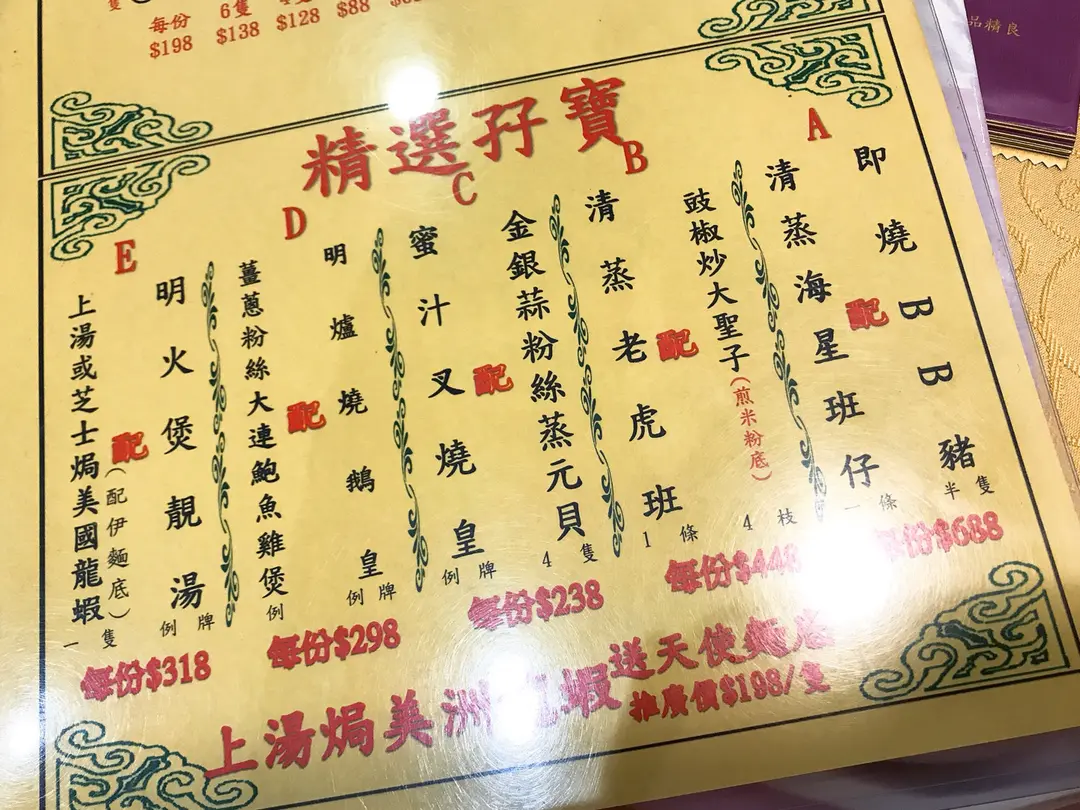 每份 6隻
$198 $138 $128 $88
品精良
精選孖寶
A
即燒BBB豬 半隻
配
清蒸海星班仔 一條
每份$688
B
豉椒炒大聖子(煎米粉底) 4枝
配
清蒸老虎班 1條
每份$448
C
金銀蒜粉絲蒸元貝 4隻
配
蜜汁叉燒皇 例牌
每份$238
D
明爐燒鵝皇 例牌
配
薑蔥粉絲大連鮑魚雞煲 例
每份$298
E
明火煲靚湯 例牌
配
上湯或芝士焗美國龍蝦(配伊麵底) 一隻
每份$318
上湯焗美洲 蝦 送天使麵底
推廣價$198/隻